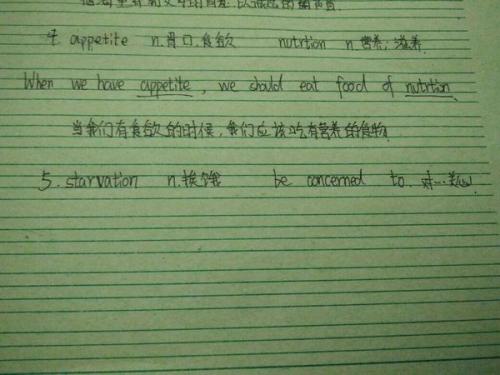 4. appetite n.胃口.食欲 nutrtion n.营养;滋养.
When we have appetite, we should eat food of nutrtion.
当我们有食欲的时候,我们应该吃有营养的食物.
5. starvation n.挨饿 be concerned to 对…关心